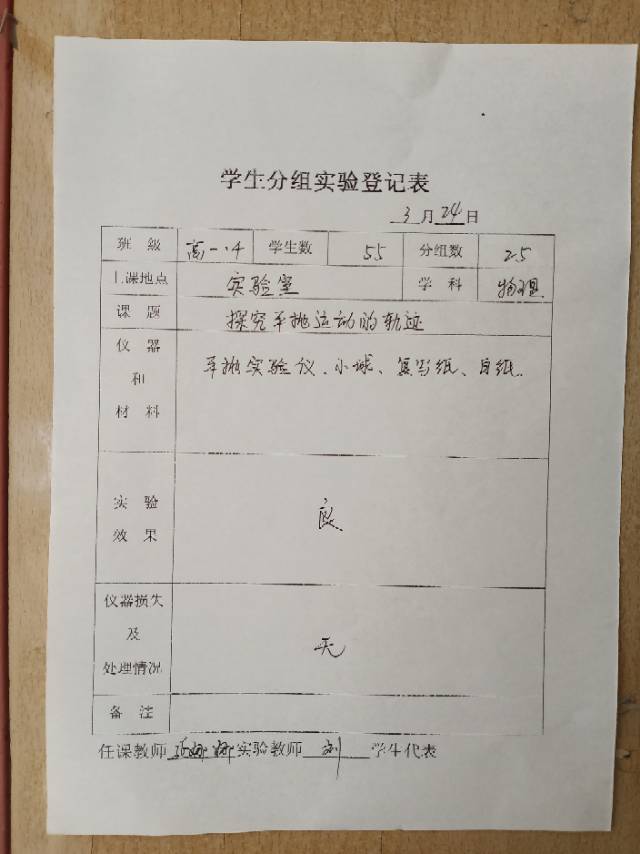 学生分组实验登记表
3月24日
班级 高一.4 学生数 55 分组数 25
上课地点 实验室 学科 物理
课题 探究平抛运动的轨迹
仪器和材料 平抛实验仪、小球、复写纸、白纸.
实验效果 良
仪器损失及处理情况 无
备注
任课教师 实验教师 刘 学生代表